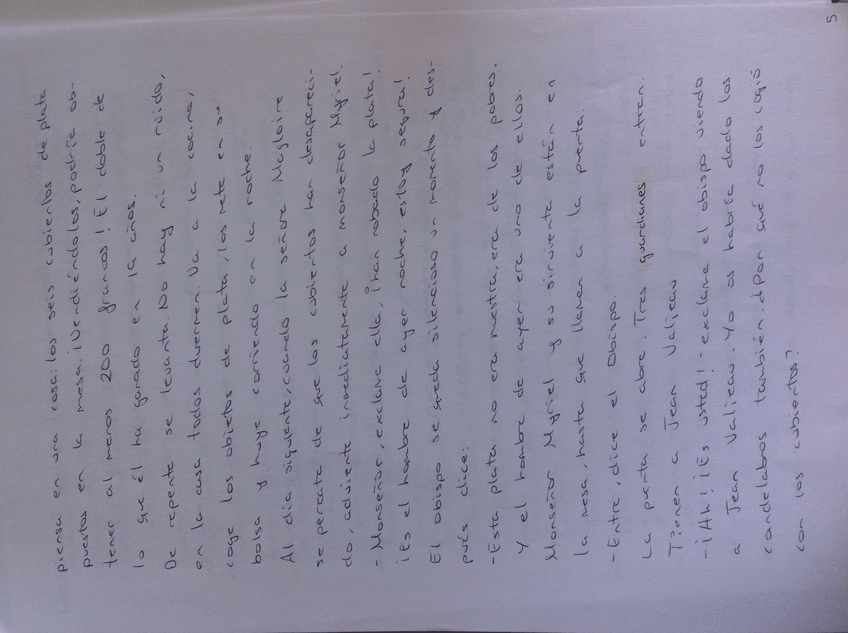 5
piensa en una cosa: los seis cubiertos de plata
puestos en la mesa. ¡Vendiéndolos, podría ob-
tener al menos 200 francos! El doble de
lo que él ha ganado en 19 años.
De repente se levanta. No hay ni un ruido,
en la casa todos duermen. Va a la cocina,
coge los objetos de plata, los mete en su
bolsa y huye corriendo en la noche.
Al día siguiente, cuando la señora Magloire
se percata de que los cubiertos han desapareci-
do, advierte inmediatamente a monseñor Myriel.
- Monseñor, exclama ella, ¡han robado la plata!
¡Es el hombre de ayer noche, estoy segura!
El obispo se queda silencioso un momento y des-
pués dice:
- Esta plata no era nuestra, era de los pobres.
Y el hombre de ayer era uno de ellos.
Monseñor Myriel y su sirvienta están en
la mesa, hasta que llaman a la puerta.
- Entre, dice el Obispo.
La puerta se abre. Tres guardianes entran.
Tienen a Jean Valjean.
- ¡Ah! ¡Es usted! - exclama el obispo viendo
a Jean Valjean. Yo os habría dado los
candelabros también. ¿Por qué no los cogió
con los cubiertos?